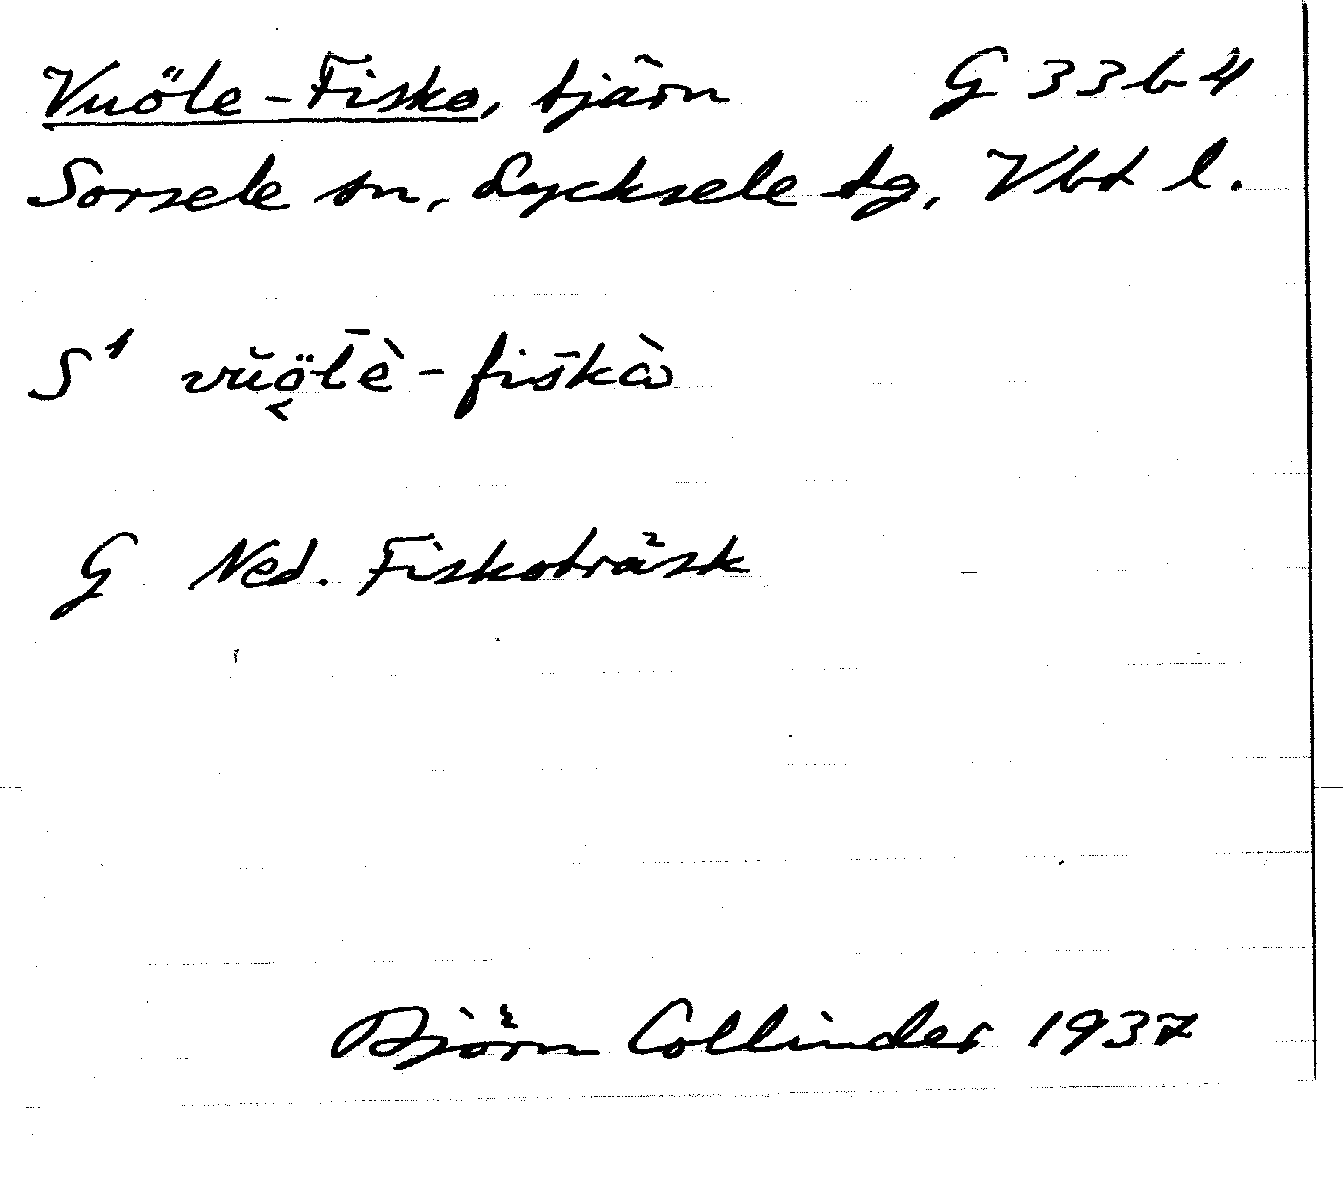 Vuöle-Fisko, tjärn G 33 b 4
Sorsele sn, Lycksele tg, Vbt l.
S¹ vŭö̬l̄ḕ-fis̄kà̇
G Ned. Fiskoträsk
Björn Collinder 1937